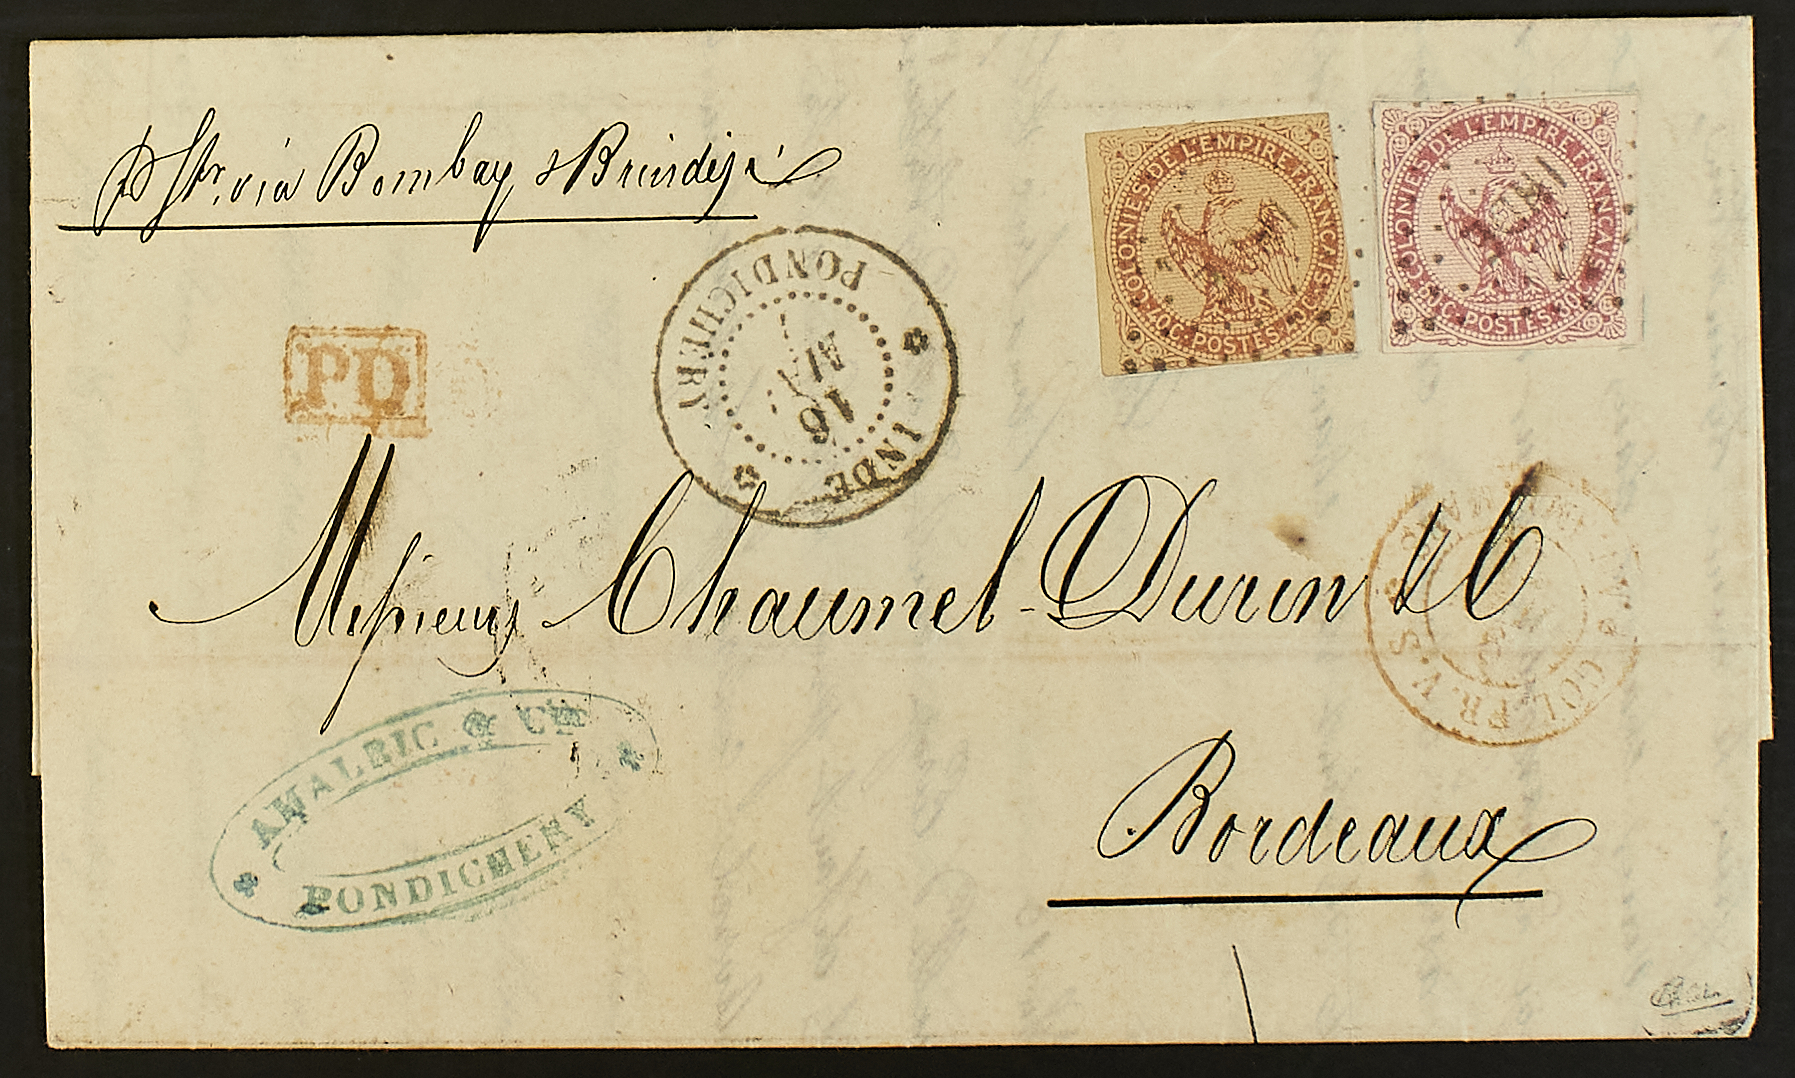 p Str. via Bombay & Brindisi
COLONIES DE L'EMPIRE FRANÇAIS
40 C. POSTES. 40 C.
COLONIES DE L'EMPIRE FRANÇAIS
80 C. POSTES. 80 C.
PONDICHERY
16
INDE
PD
Messieurs Chaumel-Durin & C
COL. FR. V. S
AMALRIC & Cie
PONDICHERY
Bordeaux